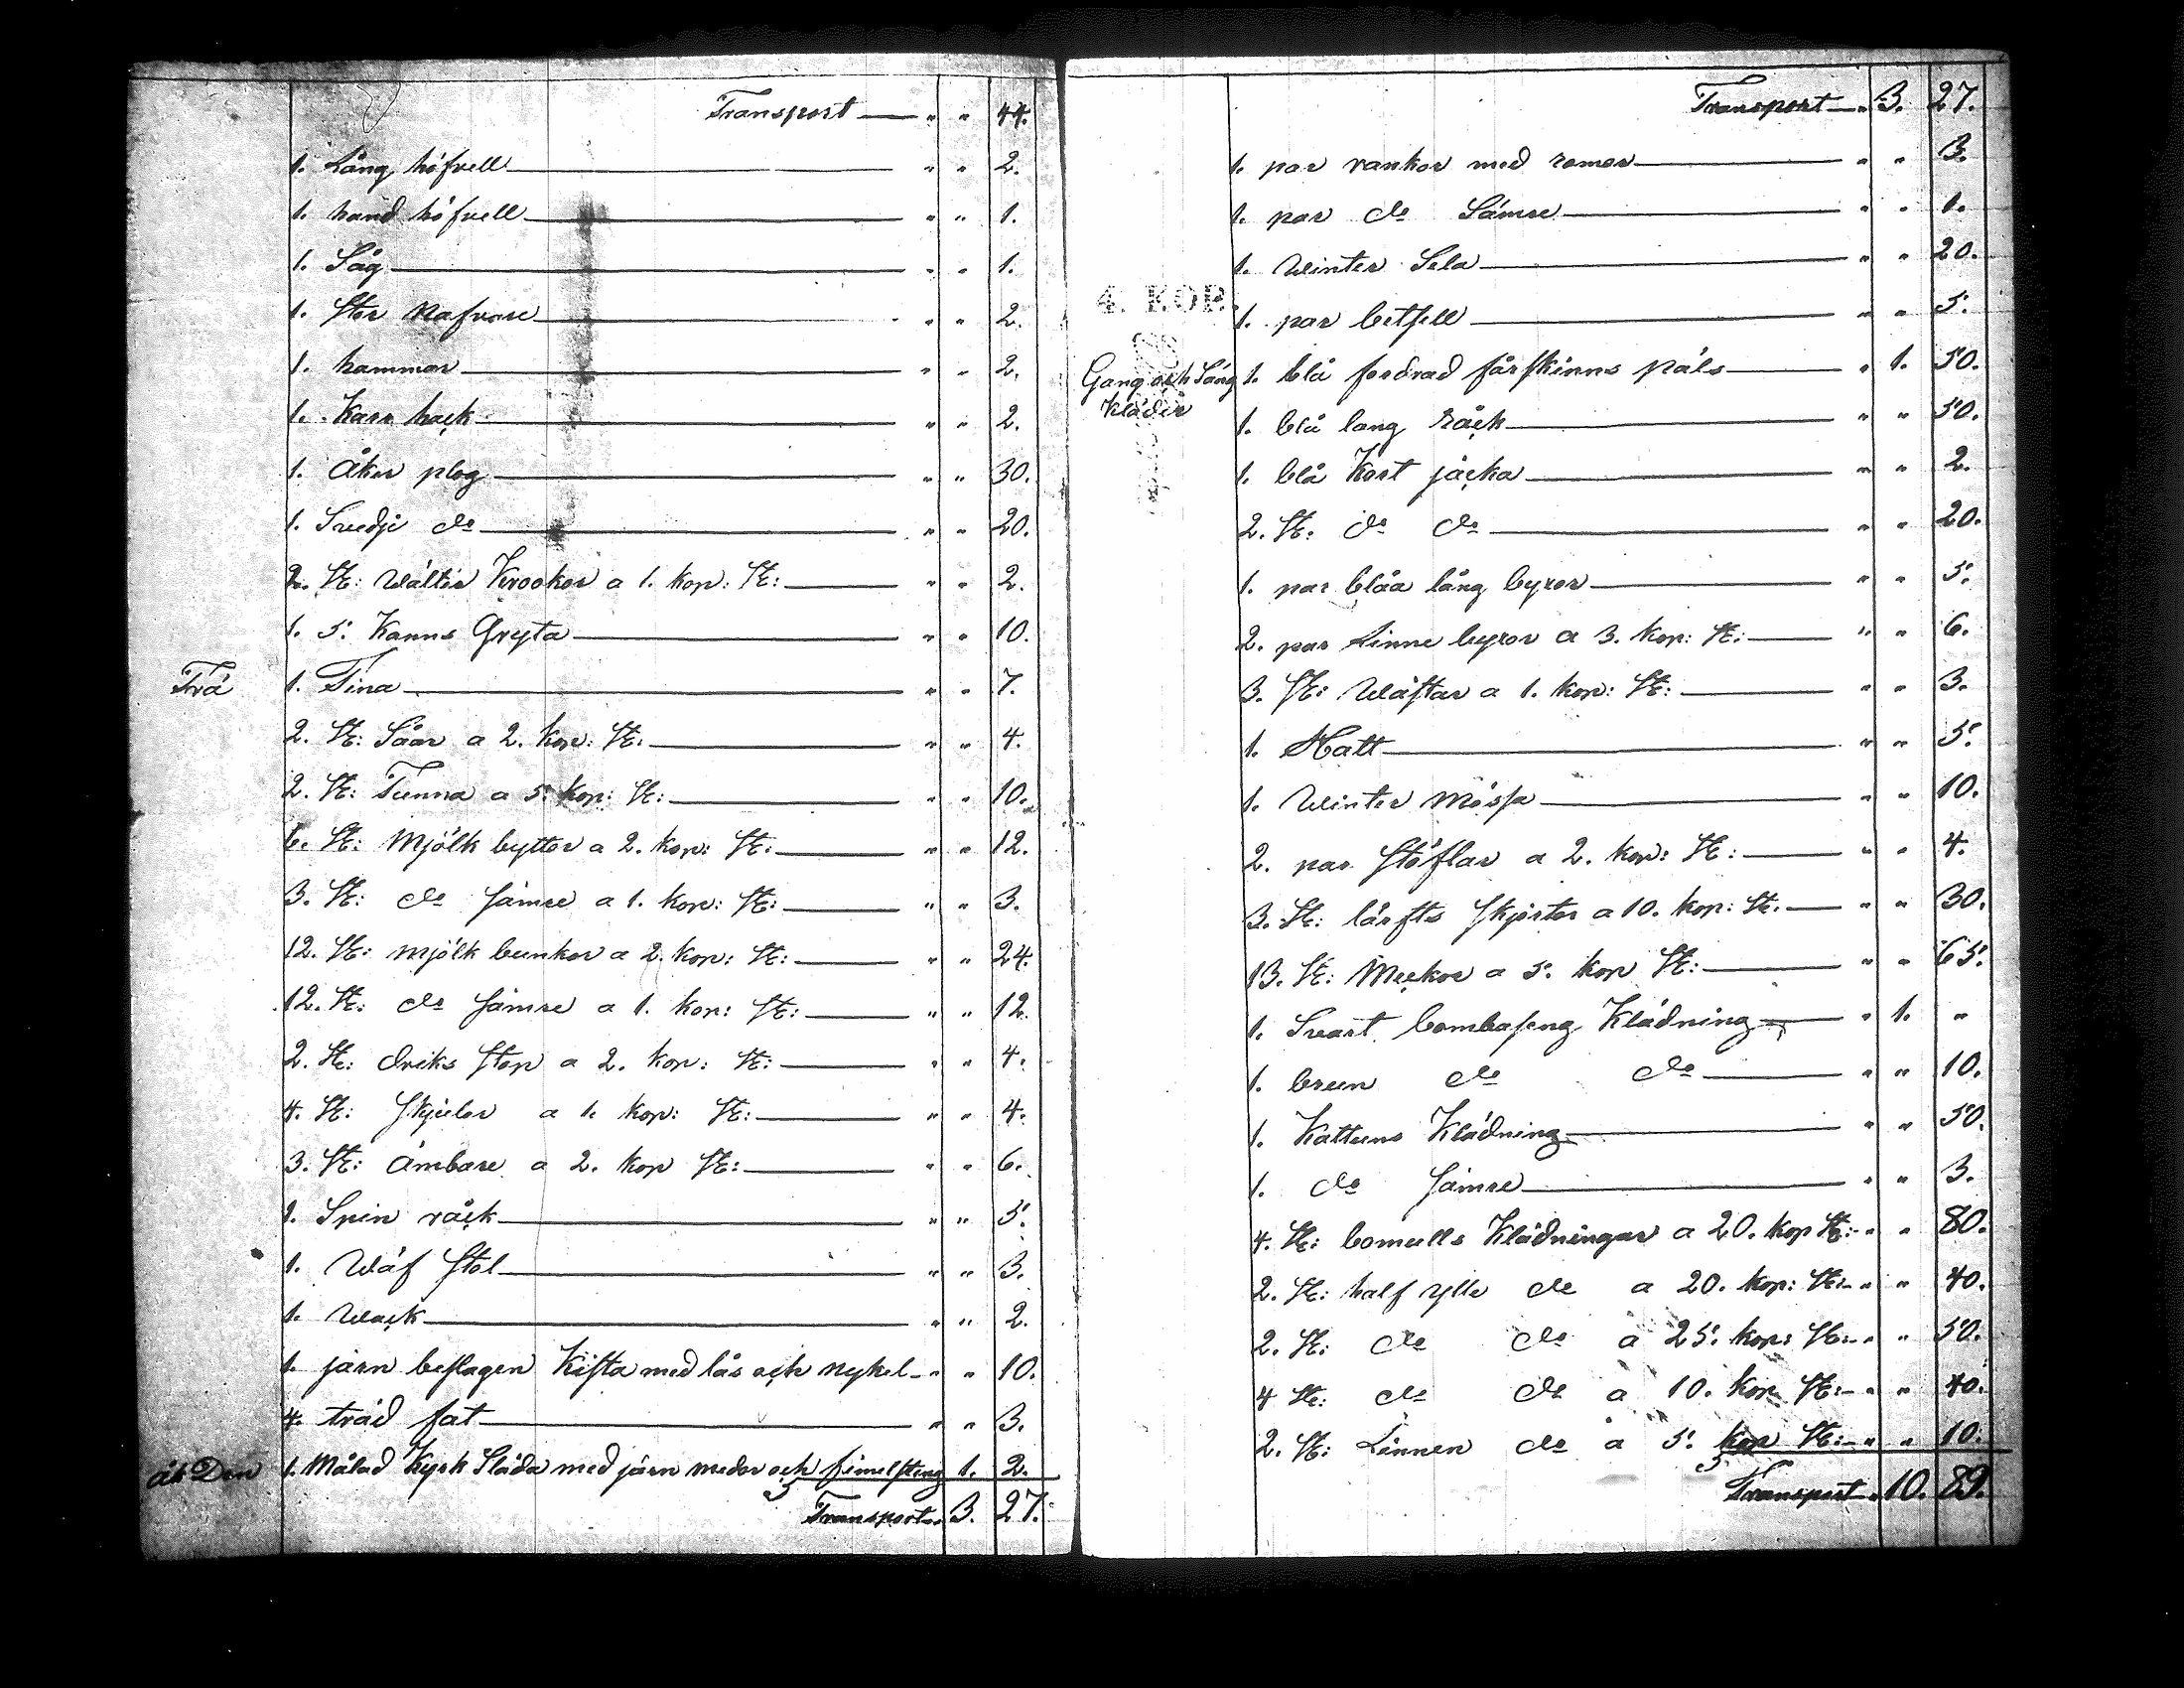 Transport — " " 44.
1. Lång höfvell — " " 2.
1. hand höfvell — " " 1.
1. Såg — " " 1.
1. Stor Nafvare — " " 2.
1. hammar — " " 2.
1. Karr hack — " " 2.
1. Åker plog — " " 30.
1. Svedje do — " " 20.
2. St: Wälter Krookor a 1. kop: St: — " " 2.
1. 5. Kanns Gryta — " " 10.
Trä 1. Tina — " " 7.
2. St: Såar a 2. kop: St: — " " 4.
2. St: Tunna a 5. kop: St: — " " 10.
6. St: Mjölk byttor a 2. kop: St: — " " 12.
3. St: do sämre a 1. kop: St: — " " 3.
12. St: mjölk bunkor a 2. kop: St: — " " 24.
12. St: do sämre a 1. kop: St: — " " 12.
2. St: driks stop a 2. kop: St: — " " 4.
4. St: skjulor a 1. kop: St: — " " 4.
3. St: ämbare a 2. kop St: — " " 6.
1. Spin råck — " " 5.
1. Wäf stol — " " 3.
1. Wack — " " 2.
1. järn beslagen Kista med lås och nykel — " " 10.
4. träd fat — " " 3.
åk Don 1. Målad Kyrk Släda med järn medor och fimelstång 1. 2.
Transport " 3. 27.
Transport — " 3. 27.
1. par rankor med romor — " " 3.
1. par do Sämre — " " 1.
1. Winter Sela — " " 20.
4. KOP.
1. par betsell — " " 5.
Gang och Säng Kläder 1. blå fordrad fårskinns päls — " 1. 50.
1. blå lang råck — " " 50.
1. blå Kort jäcka — " " 2.
2. St: do do — " " 20.
1. par blåa lång byxor — " " 5.
2. par Linne byxor a 3. kop: St: — " " 6.
3. St: Wästar a 1. kop: St: — " " 3.
1. Hatt — " " 5.
1. Winter Mössa — " " 10.
2. par stöflar a 2. kop: St: — " " 4.
3. St: lärfts skjortor a 10. kop: St: — " " 30.
13. St: Meckor a 5. kop St: — " " 65.
1. Svart bombaseng Klädning — " 1. "
1. brun do do — " " 10.
1. Kattuns Klädning — " " 50.
1. do sämre — " " 3.
4. St: bomulls Klädningar a 20. kop St: — " " 80.
2. St: half ylle do a 20. kop: St: — " " 40.
2. St: do do a 25. kop: St: — " " 50.
4 St: do do a 10. kop St: — " " 40.
2. St: Linnen do a 5. kop St: — " " 10.
Transport " 10. 89.